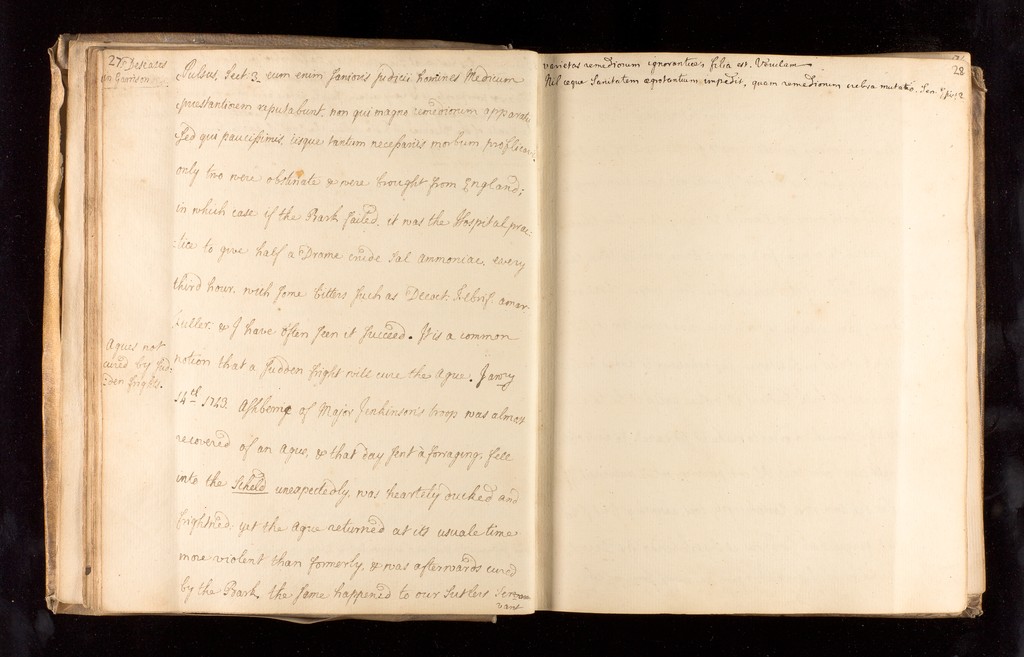 27 Deseases
in Garrison
Pulsus. Sect. 3. eum enim sanioris judicii homines Medicum
præstantiorem reputabunt, non qui magno remediorum apparatu
sed qui paucissimis, iisque tantum necessariis morbum
only two were obstinate & were brought from England;
in which case if the Bark failed, it was the Hospital prac-
tice to give half a Drame crude Sal ammoniac. every
third hour, with some bitters such as Decoct. Febrif. amar.
Fuller. & I have often seen it succeed. It is a common
Agues not
cured by sud-
den frights.
notion that a sudden fright will cure the Ague. Janry
14th 1743. of Major Jenkinson's troop was almost
recovered of an ague, & that day sent a forraging, fell
into the Scheld unexpectedly, was heartely ducked and
frightned; yet the ague returned at its usuale time
more violent than formerly, & was afterwards cured
by the Bark. the same happened to our Sutlers Ser-
vant
28
varietas remediorum ignorantiæ filia est. Verulam
Nil æque Sanitatem ægrotantium impedit, quam remediorum crebra mutatio. Sen. Epis: 2